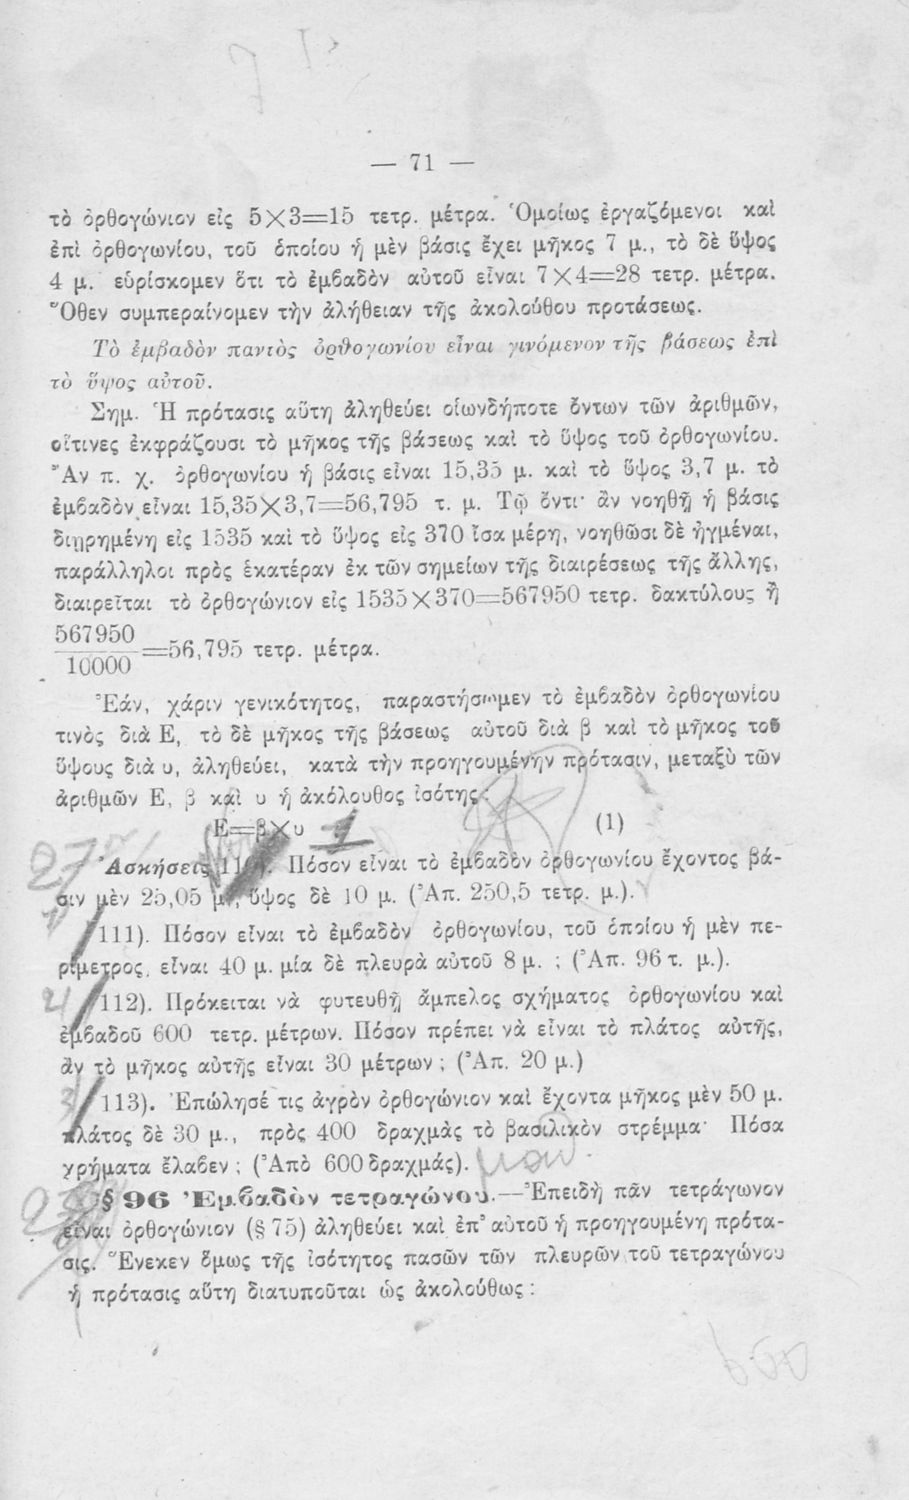 — 71 —
τὸ ὀρθογώνιον εἰς 5×3=15 τετρ. μέτρα. Ὁμοίως ἐργαζόμενοι καὶ
ἐπὶ ὀρθογωνίου, τοῦ ὁποίου ἡ μὲν βάσις ἔχει μῆκος 7 μ., τὸ δὲ ὕψος
4 μ. εὑρίσκομεν ὅτι τὸ ἐμβαδὸν αὐτοῦ εἶναι 7×4=28 τετρ. μέτρα.
Ὅθεν συμπεραίνομεν τὴν ἀλήθειαν τῆς ἀκολούθου προτάσεως.
Τὸ ἐμβαδὸν παντὸς ὀρθογωνίου εἶναι γινόμενον τῆς βάσεως ἐπὶ
τὸ ὕψος αὐτοῦ.
Σημ. Ἡ πρότασις αὕτη ἀληθεύει οἱωνδήποτε ὄντων τῶν ἀριθμῶν,
οἵτινες ἐκφράζουσι τὸ μῆκος τῆς βάσεως καὶ τὸ ὕψος τοῦ ὀρθογωνίου.
Ἂν π. χ. ὀρθογωνίου ἡ βάσις εἶναι 15,35 μ. καὶ τὸ ὕψος 3,7 μ. τὸ
ἐμβαδὸν εἶναι 15,35×3,7=56,795 τ. μ. Τῷ ὄντι· ἂν νοηθῇ ἡ βάσις
διῃρημένη εἰς 1535 καὶ τὸ ὕψος εἰς 370 ἴσα μέρη, νοηθῶσι δὲ ἠγμέναι,
παράλληλοι πρὸς ἑκατέραν ἐκ τῶν σημείων τῆς διαιρέσεως τῆς ἄλλης,
διαιρεῖται τὸ ὀρθογώνιον εἰς 1535×370=567950 τετρ. δακτύλους ἢ
567950
10000 =56,795 τετρ. μέτρα.
Ἐάν, χάριν γενικότητος, παραστήσωμεν τὸ ἐμβαδὸν ὀρθογωνίου
τινὸς διὰ Ε, τὸ δὲ μῆκος τῆς βάσεως αὐτοῦ διὰ β καὶ τὸ μῆκος τοῦ
ὕψους διὰ υ, ἀληθεύει, κατὰ τὴν προηγουμένην πρότασιν, μεταξὺ τῶν
ἀριθμῶν Ε, β καὶ υ ἡ ἀκόλουθος ἰσότης:
Ε=β×υ (1)
Ἀσκήσεις 110). Πόσον εἶναι τὸ ἐμβαδὸν ὀρθογωνίου ἔχοντος βά-
σιν μὲν 25,05 μ., ὕψος δὲ 10 μ. (Ἀπ. 250,5 τετρ. μ.).
111). Πόσον εἶναι τὸ ἐμβαδὸν ὀρθογωνίου, τοῦ ὁποίου ἡ μὲν πε-
ρίμετρος εἶναι 40 μ. μία δὲ πλευρὰ αὐτοῦ 8 μ. ; (Ἀπ. 96 τ. μ.).
112). Πρόκειται νὰ φυτευθῇ ἄμπελος σχήματος ὀρθογωνίου καὶ
ἐμβαδοῦ 600 τετρ. μέτρων. Πόσον πρέπει νὰ εἶναι τὸ πλάτος αὐτῆς,
ἂν τὸ μῆκος αὐτῆς εἶναι 30 μέτρων ; (Ἀπ. 20 μ.)
113). Ἐπώλησέ τις ἀγρὸν ὀρθογώνιον καὶ ἔχοντα μῆκος μὲν 50 μ.
πλάτος δὲ 30 μ., πρὸς 400 δραχμὰς τὸ βασιλικὸν στρέμμα· Πόσα
χρήματα ἔλαβεν ; (Ἀπὸ 600 δραχμάς).
§ 96 Ἐμβαδὸν τετραγώνου.—Ἐπειδὴ πᾶν τετράγωνον
εἶναι ὀρθογώνιον (§ 75) ἀληθεύει καὶ ἐπ᾽ αὐτοῦ ἡ προηγουμένη πρότα-
σις. Ἕνεκεν ὅμως τῆς ἰσότητος πασῶν τῶν πλευρῶν τοῦ τετραγώνου
ἡ πρότασις αὕτη διατυποῦται ὡς ἀκολούθως :